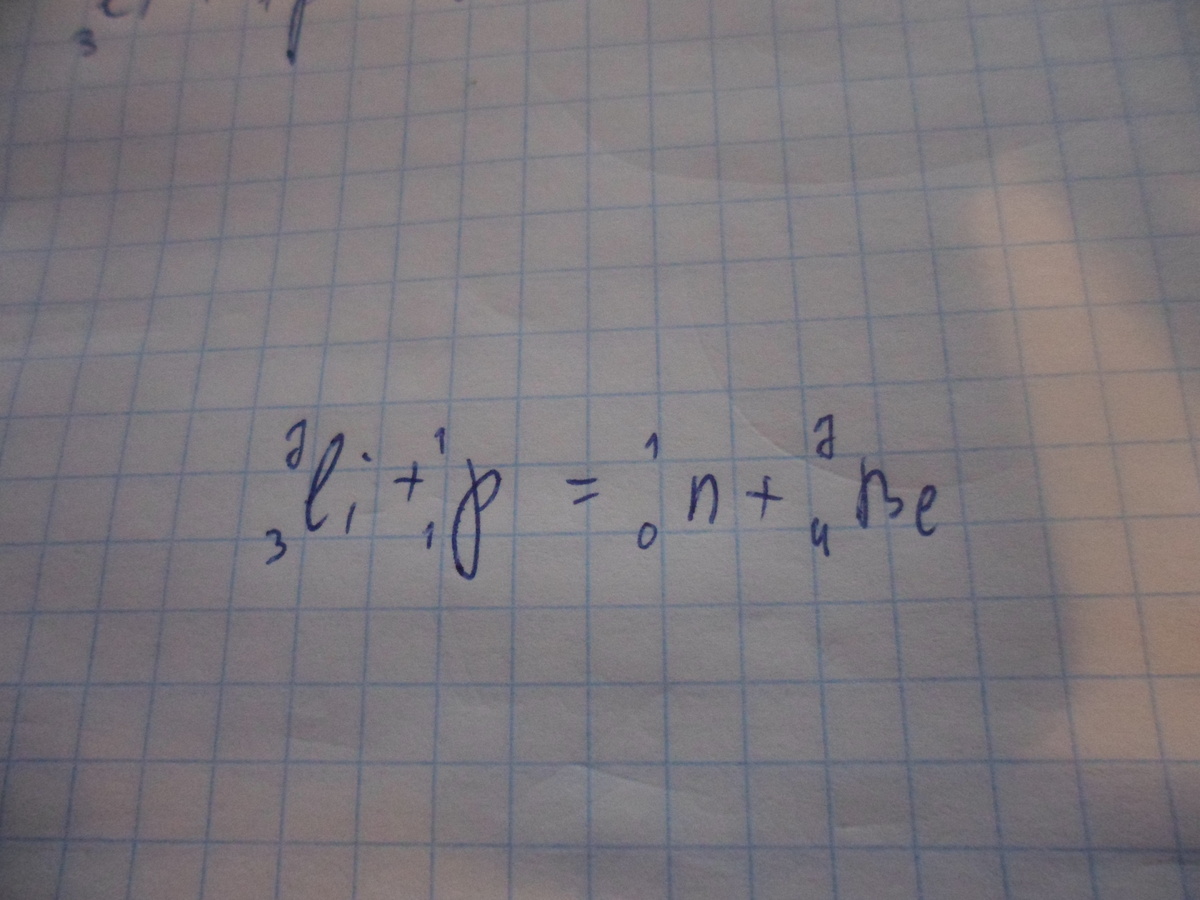 ⁷₃Li + ¹₁p = ¹₀n + ⁷₄Be